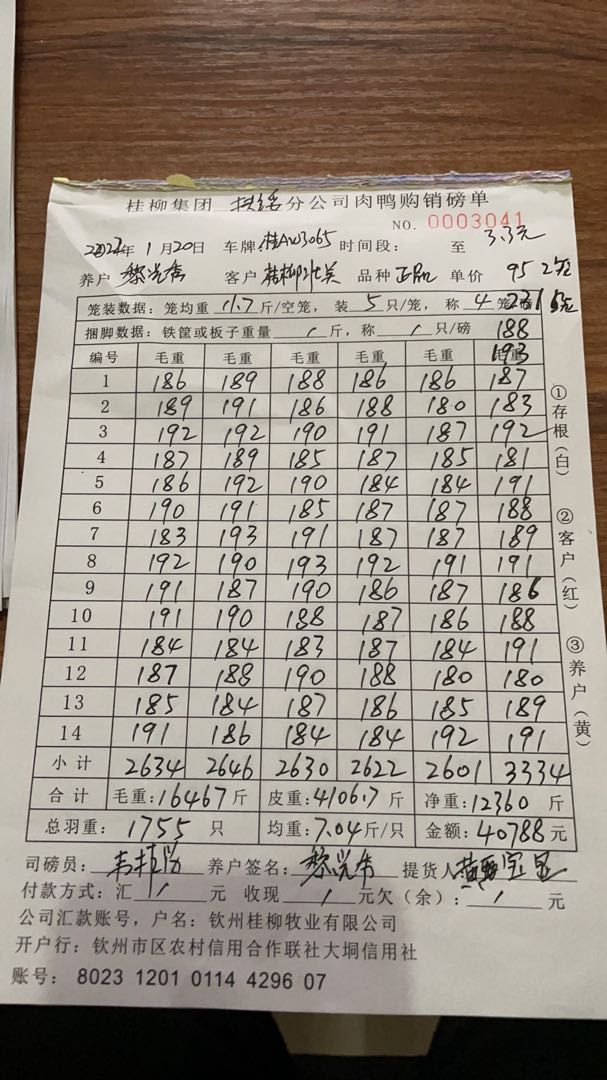 桂柳集团 分公司肉鸭购销磅单
NO. 0003041
2022年 1月20日 车牌:桂AW3065 时间段: 至 3.3元
养户 客户 桂柳 品种 正品 单价 95 2.
笼装数据:笼均重 11.7 斤/空笼,装 5 只/笼,称 4 笼 231
捆脚数据:铁筐或板子重量 / 斤,称 / 只/磅 188
193
编号 毛重 毛重 毛重 毛重 毛重 毛重
1 186 189 188 186 186 187
2 189 191 186 188 180 183
3 192 192 190 191 187 192
4 187 189 185 187 185 181
5 186 192 190 184 184 191
6 190 191 185 187 187 188
7 183 193 191 187 187 189
8 192 190 193 192 191 191
9 191 187 190 186 187 186
10 191 190 188 187 186 188
11 184 184 183 187 184 191
12 187 188 190 188 180 180
13 185 184 187 186 185 189
14 191 186 184 184 192 191
小计 2634 2646 2630 2622 2601 3334
合计 毛重:16467斤 皮重:4106.7斤 净重:12360斤
总羽重: 1755 只 均重:7.04斤/只 金额:40788元
司磅员: 养户签名: 提货人
付款方式:汇 / 元 收现 / 元欠(余): / 元
公司汇款账号,户名:钦州桂柳牧业有限公司
开户行:钦州市区农村信用合作联社大垌信用社
账号:8023 1201 0114 4296 07
①存根(白) ②客户(红) ③养户(黄)